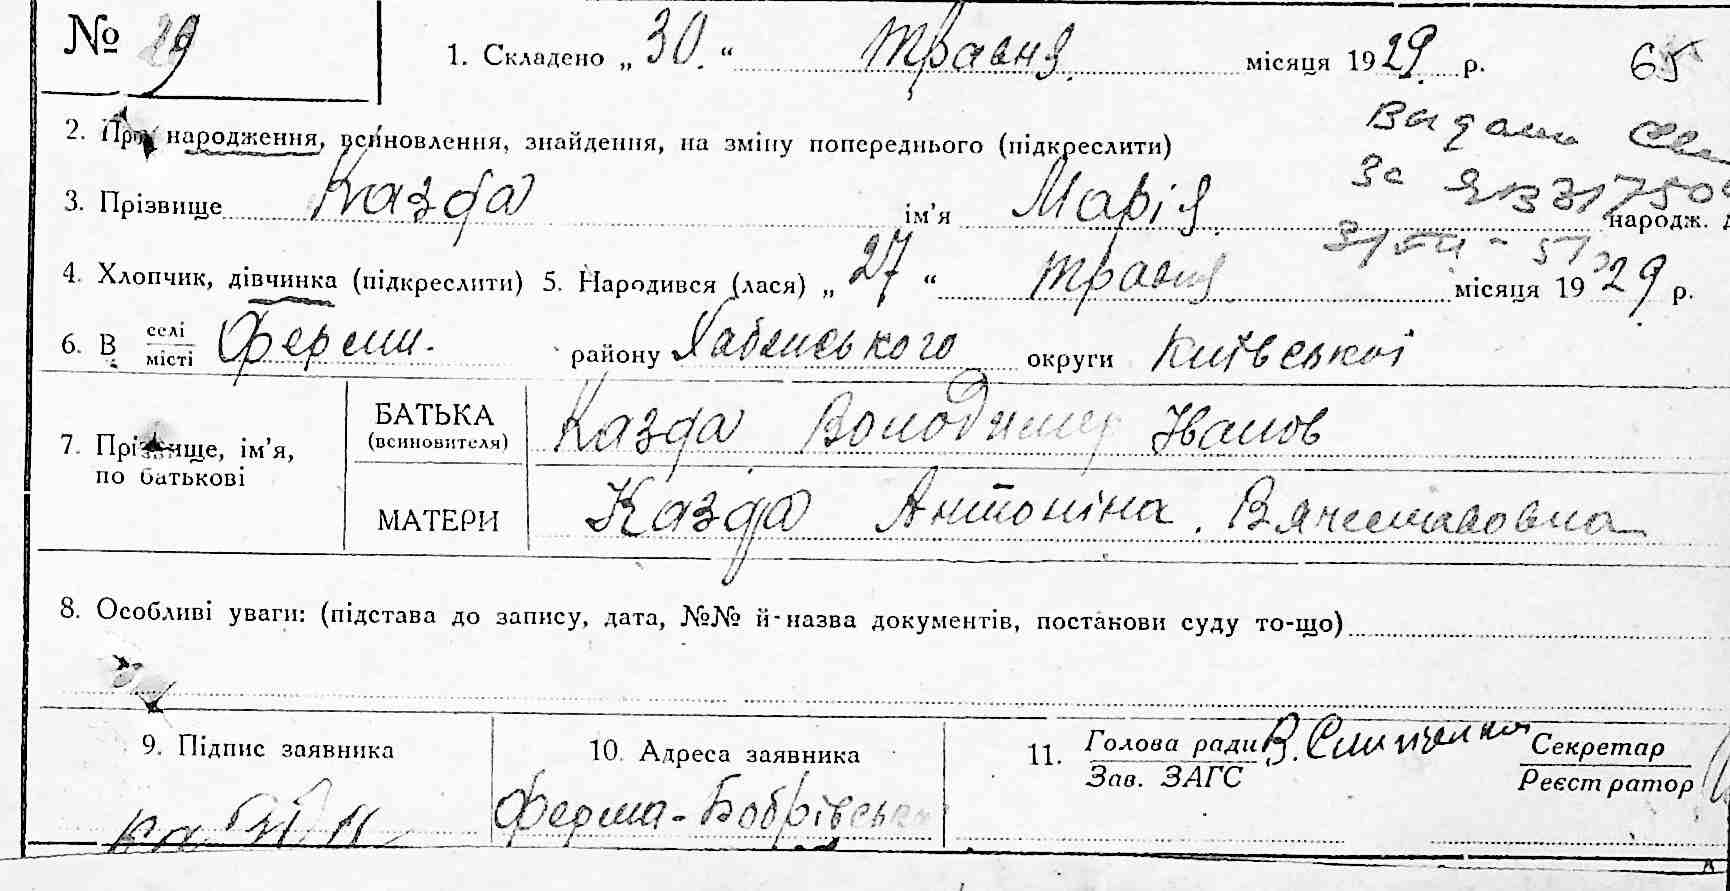 № 29
1. Складено „ 30. “ травня. місяця 1929. р. 65
2. Про народження, всиновлення, знайдення, на зміну попереднього (підкреслити)
Видан
3. Прізвище Казда ім’я Марія народж.
за
4. Хлопчик, дівчинка (підкреслити) 5. Народився (лася) „ 27 “ травня місяця 1929 р.
6. В селі Ферми. району Хабенського округи Київської
місті
7. Прізвище, ім’я, по батькові
БАТЬКА Казда Володимер Іванов
(всиновителя)
МАТЕРИ Казда Антоніна. Вячеславовна
8. Особливі уваги: (підстава до запису, дата, №№ й-назва документів, постанови суду то-що)
9. Підпис заявника
10. Адреса заявника
Ферма-Бобрівська
11. Голова ради В.
Зав. ЗАГС
Секретар
Реєстратор